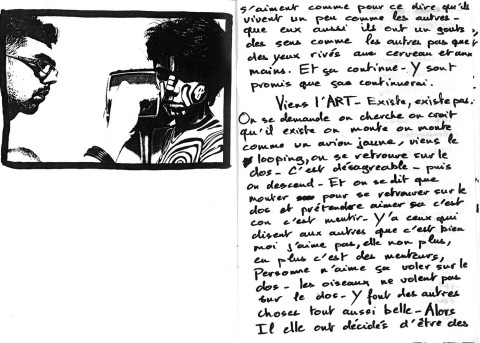 s'aiment comme pour ce dire qu'ils
vivent un peu comme les autres -
que eux aussi ils ont un gouts,
des sens comme les autres pas que
des yeux rivés aux cerveau et aux
mains. Et sa continue - Y sont
promis que sa continuerai.
Viens l'ART - Existe, existe pas.
On se demande on cherche on croit
qu'il existe on monte on monte
comme un avion jaune, viens le
looping, on se retrouve sur le
dos - C'est désagreable - puis
on descend - Et on se dit que
monter pour se retrouver sur le
dos et prétendre aimer sa c'est
con c'est mentir - Y'a ceux qui
disent aux autres que c'est bien
moi j'aime pas, elle non plus,
en plus c'est des menteurs,
Personne n'aime sa voler sur le
dos - les oiseaux ne volent pas
sur le dos - Y font des autres
choses tout aussi belle - Alors
Il elle ont décidés d'être des